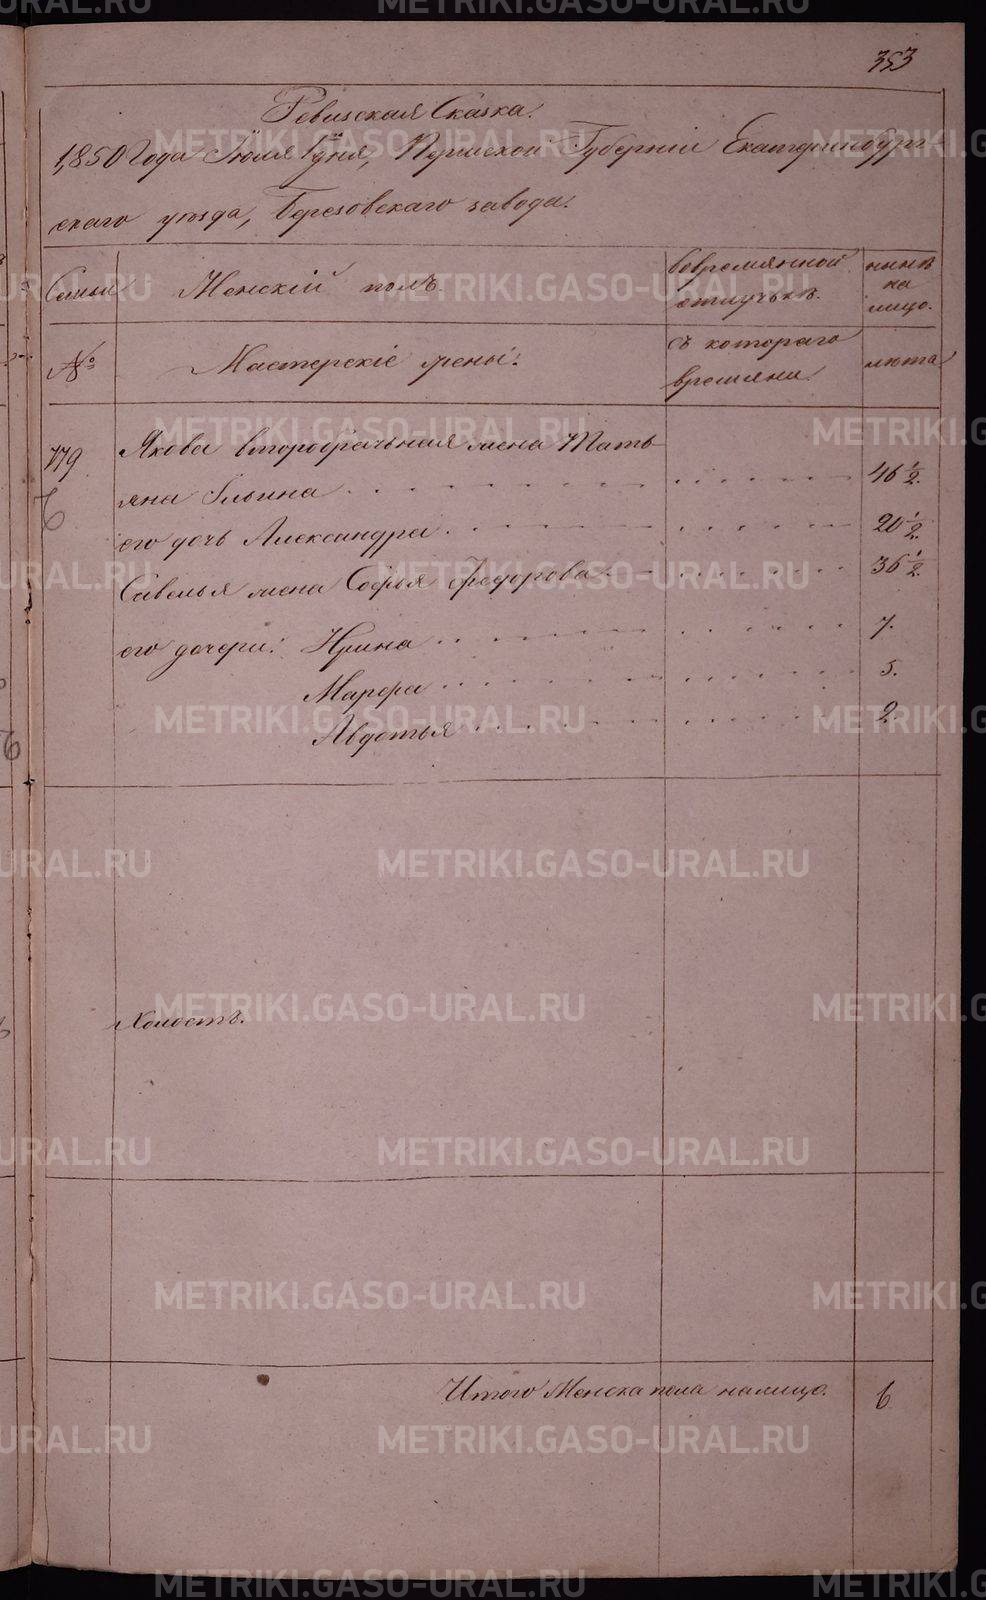 353
Ревизская Сказка.
1,850 Года Июля 1 дня, Пермской Губерніи Екатеринбург-
скаго уезда, Березовскаго завода.
Семьи
Женскій полъ.
вовремянной отлучькѣ.
нынѣ на лицо.
№
Мастерскіе жены:
съ котораго времяни
лета
779
Якова второбрачьная жена Тать-
яна Ильина 46 1/2.
его дочь Александра 20 1/2.
Савелья жена Софья Федорова 36 1/2.
его дочери: Ирина 7.
Марфа 5.
Авдотья 2.
Холостъ.
Итого Женска пола налицо. 6
METRIKI.GASO-URAL.RU